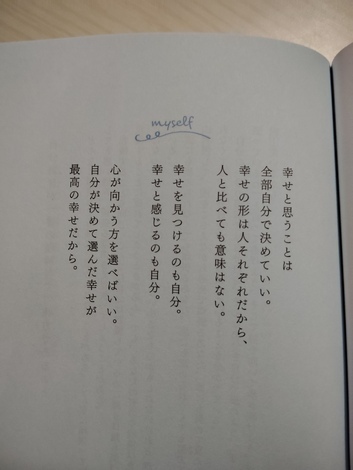 myself
幸せと思うことは
全部自分で決めていい。
幸せの形は人それぞれだから、
人と比べても意味はない。
幸せを見つけるのも自分。
幸せと感じるのも自分。
心が向かう方を選べばいい。
自分が決めて選んだ幸せが
最高の幸せだから。